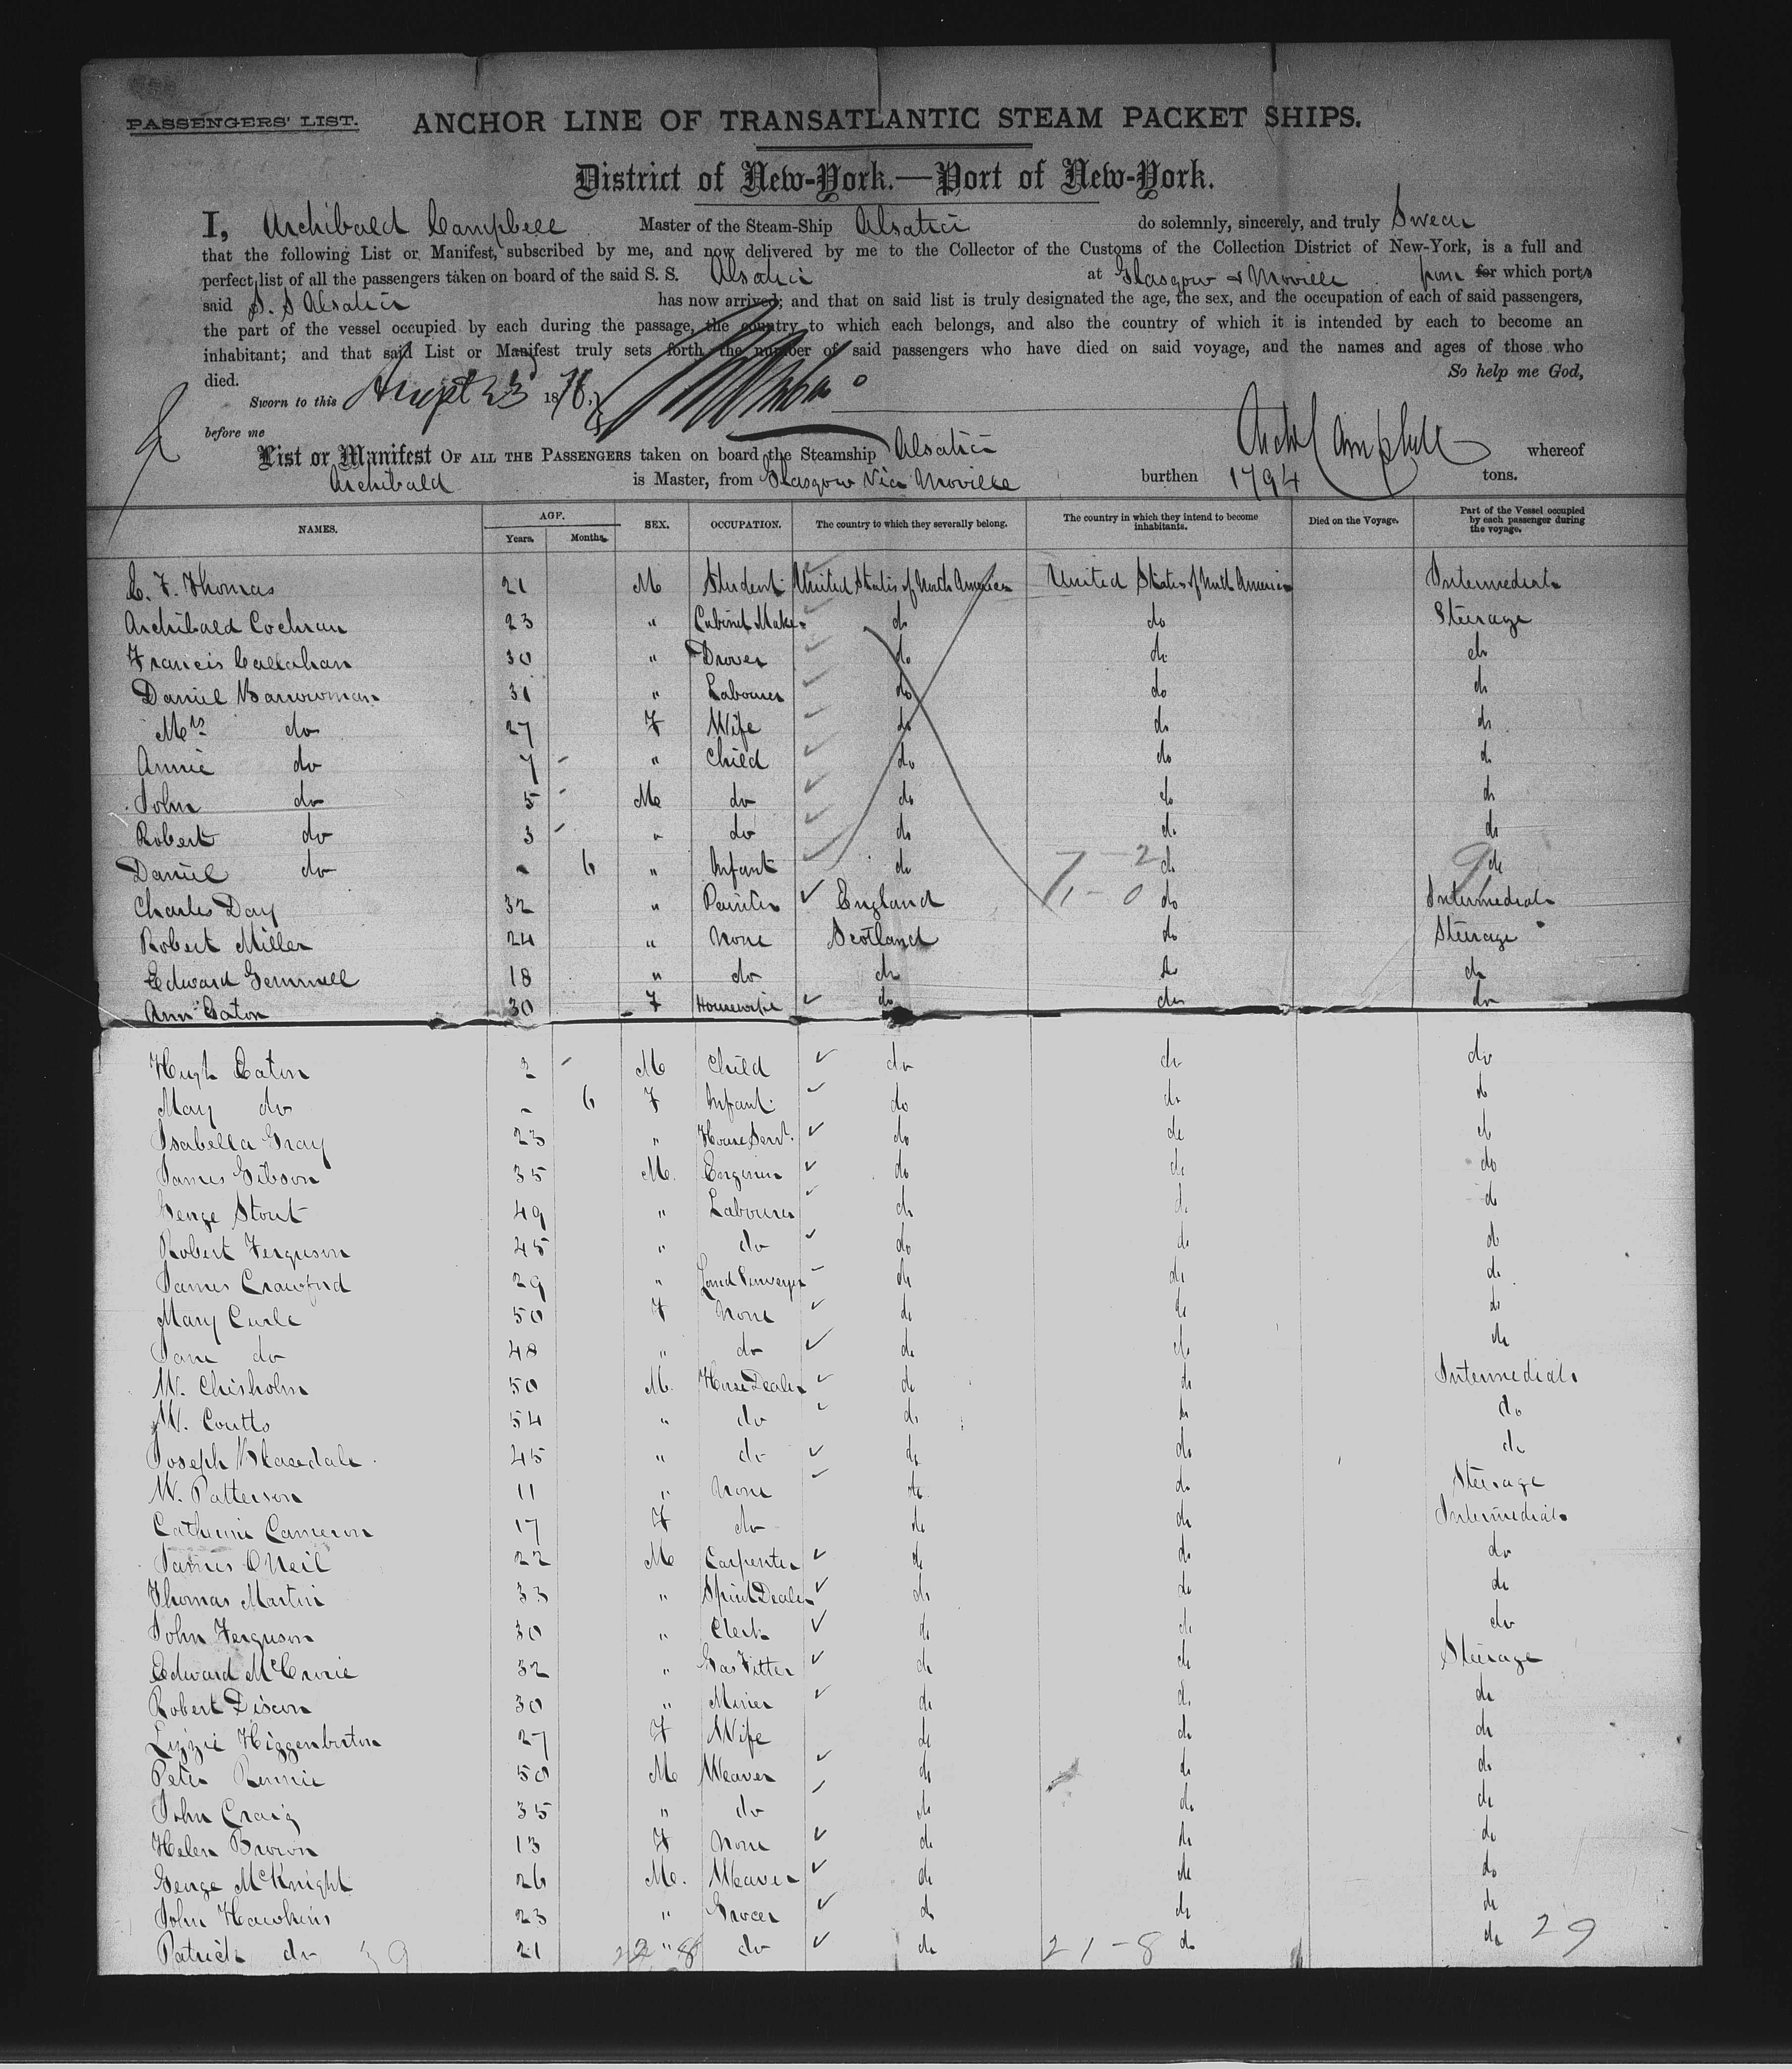 PASSENGERS' LIST.
ANCHOR LINE OF TRANSATLANTIC STEAM PACKET SHIPS.
District of New-York.—Port of New-York.
I, Archibald Campbell Master of the Steam-Ship Alsatia do solemnly, sincerely, and truly Swear
that the following List or Manifest, subscribed by me, and now delivered by me to the Collector of the Customs of the Collection District of New-York, is a full and
perfect list of all the passengers taken on board of the said S. S. Alsatia at Glasgow & Moville from for which ports
said S. S Alsatia has now arrived; and that on said list is truly designated the age, the sex, and the occupation of each of said passengers,
the part of the vessel occupied by each during the passage, the country to which each belongs, and also the country of which it is intended by each to become an
inhabitant; and that said List or Manifest truly sets forth the number of said passengers who have died on said voyage, and the names and ages of those who
died. So help me God,
Sworn to this Augst 23 1876,
before me Archd Campbell
List or Manifest OF ALL THE PASSENGERS taken on board the Steamship Alsatia whereof
Archibald is Master, from Glasgow Via Moville burthen 1794 tons.
NAMES. AGE. Years. Months. SEX. OCCUPATION. The country to which they severally belong. The country in which they intend to become inhabitants. Died on the Voyage. Part of the Vessel occupied by each passenger during the voyage.
C. F. Thomas 21 M Student United States of North America United States of North America Intermediate
Archibald Cochran 23 " Cabinet Maker do do Steerage
Francis Callahan 30 " Drover do do do
Daniel Barrowman 31 " Labourer do do do
Mrs do 27 F Wife do do do
Annie do 7 - " Child do do do
John do 5 - M do do do do
Robert do 3 - " do do do do
Daniel do - 6 " Infant do do do
7-2 9
Charles Day 32 " Painter England do Intermediate
1-0
Robert Miller 24 " None Scotland do Steerage
Edward Gemmell 18 " do do do do
Ann Eaton 30 F Housewife do do do
Hugh Eaton 3 - M Child do do do
May do - 6 F Infant do do do
Isabella Gray 23 " House Servt. do do do
James Gibson 35 M. Engineer do do do
George Stout 49 " Labourer do do do
Robert Ferguson 45 " do do do do
James Crawford 29 " Land Surveyor do do do
Mary Curle 50 F None do do do
Jane do 48 " do do do do
W. Chisholm 50 M. Horse Dealer do do Intermediate
W. Coutts 54 " do do do do
Joseph Blasedale 45 " do do do do
W. Patterson 11 " None do do Steerage
Catherine Cameron 17 F do do do Intermediate
James ONeil 22 M Carpenter do do do
Thomas Martin 33 " Spirit Dealer do do do
John Ferguson 30 " Clerk do do do
Edward McCrorie 32 " Gas Fitter do do Steerage
Robert Discon 30 " Miner do do do
Lizzie Higgenbotom 27 F Wife do do do
Peter Rennie 50 M Weaver do do do
John Craig 35 " do do do do
Helen Brown 13 F None do do do
George McKnight 26 M. Weaver do do do
John Hawkins 23 " Grocer do do do
Patrick do 39 21 " do do do do 29
22-8 21-8